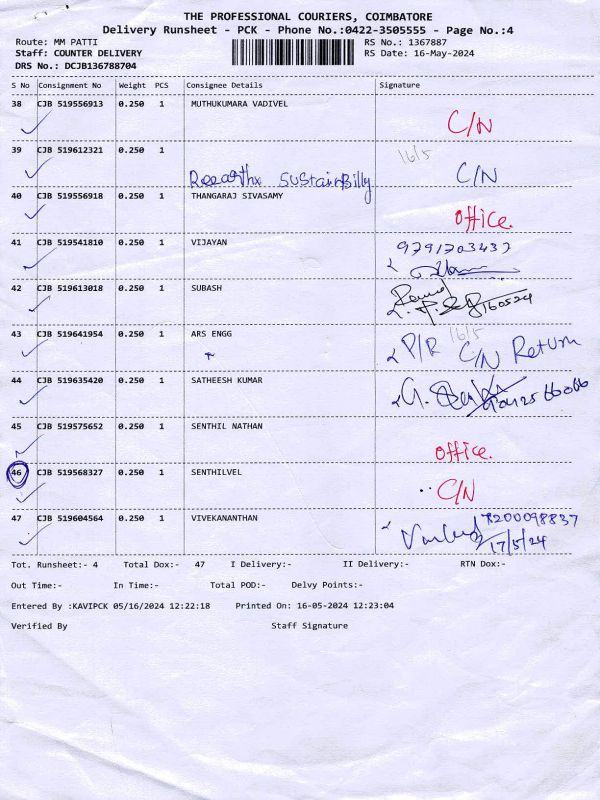 THE PROFESSIONAL COURIERS, COIMBATORE
Delivery Runsheet - PCK - Phone No.:0422-3505555 - Page No.:4
Route: MM PATTI RS No.: 1367887
Staff: COUNTER DELIVERY RS Date: 16-May-2024
DRS No.: DCJB136788704
S No Consignment No Weight PCS Consignee Details Signature
38 CJB 519556913 0.250 1 MUTHUKUMARA VADIVEL
C/N
39 CJB 519612321 0.250 1 16/5
C/N
40 CJB 519556918 0.250 1 THANGARAJ SIVASAMY
office.
41 CJB 519541810 0.250 1 VIJAYAN 9791703437
42 CJB 519613018 0.250 1 SUBASH
160524
43 CJB 519641954 0.250 1 ARS ENGG 16/5
P/R C/N Return
44 CJB 519635420 0.250 1 SATHEESH KUMAR
45 CJB 519575652 0.250 1 SENTHIL NATHAN
office.
46 CJB 519568327 0.250 1 SENTHILVEL
C/N
47 CJB 519604564 0.250 1 VIVEKANANTHAN 8200098837
17/5/24
Tot. Runsheet:- 4 Total Dox:- 47 I Delivery:- II Delivery:- RTN Dox:-
Out Time:- In Time:- Total POD:- Delvy Points:-
Entered By :KAVIPCK 05/16/2024 12:22:18 Printed On: 16-05-2024 12:23:04
Verified By Staff Signature